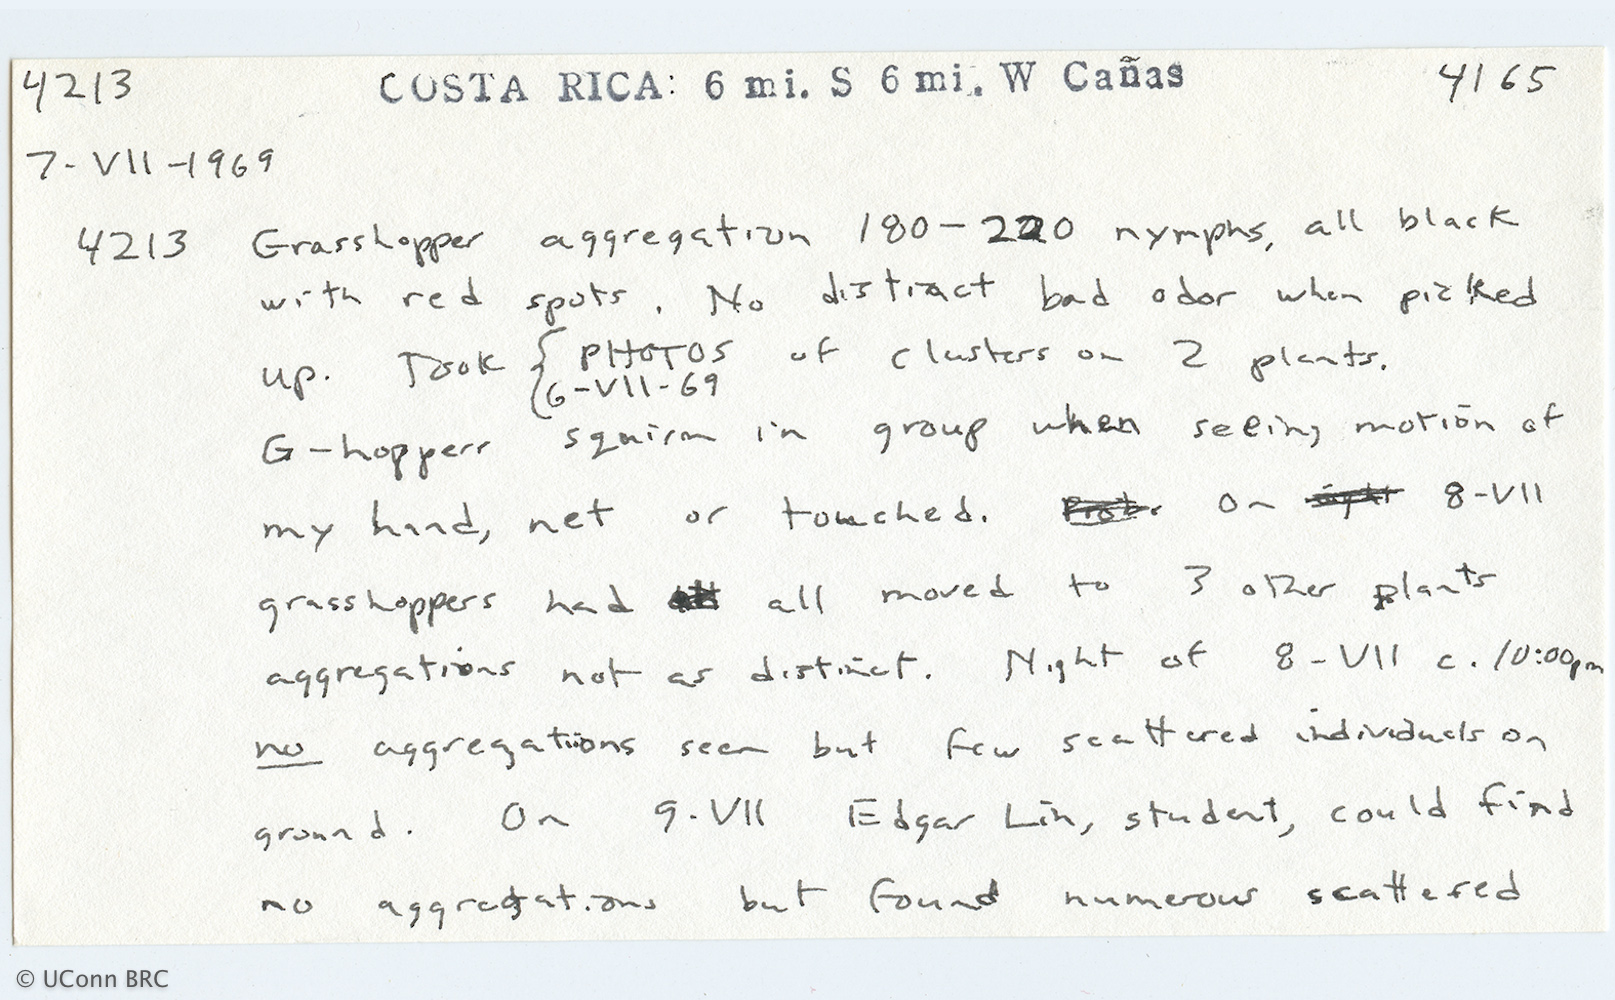 4213 COSTA RICA: 6 mi. S 6 mi. W Cañas 4165
7-VII-1969
4213 Grasshopper aggregation 180-220 nymphs, all black
with red spots. No distinct bad odor when picked
up. Took { PHOTOS of clusters on 2 plants.
6-VII-69
G-hoppers squirm in group when seeing motion of
my hand, net or touched. On 8-VII
grasshoppers had all moved to 3 other plants
aggregations not as distinct. Night of 8-VII c. 10:00pm
no aggregations seen but few scattered individuals on
ground. On 9-VII Edgar Lin, student, could find
no aggregations but found numerous scattered
© UConn BRC